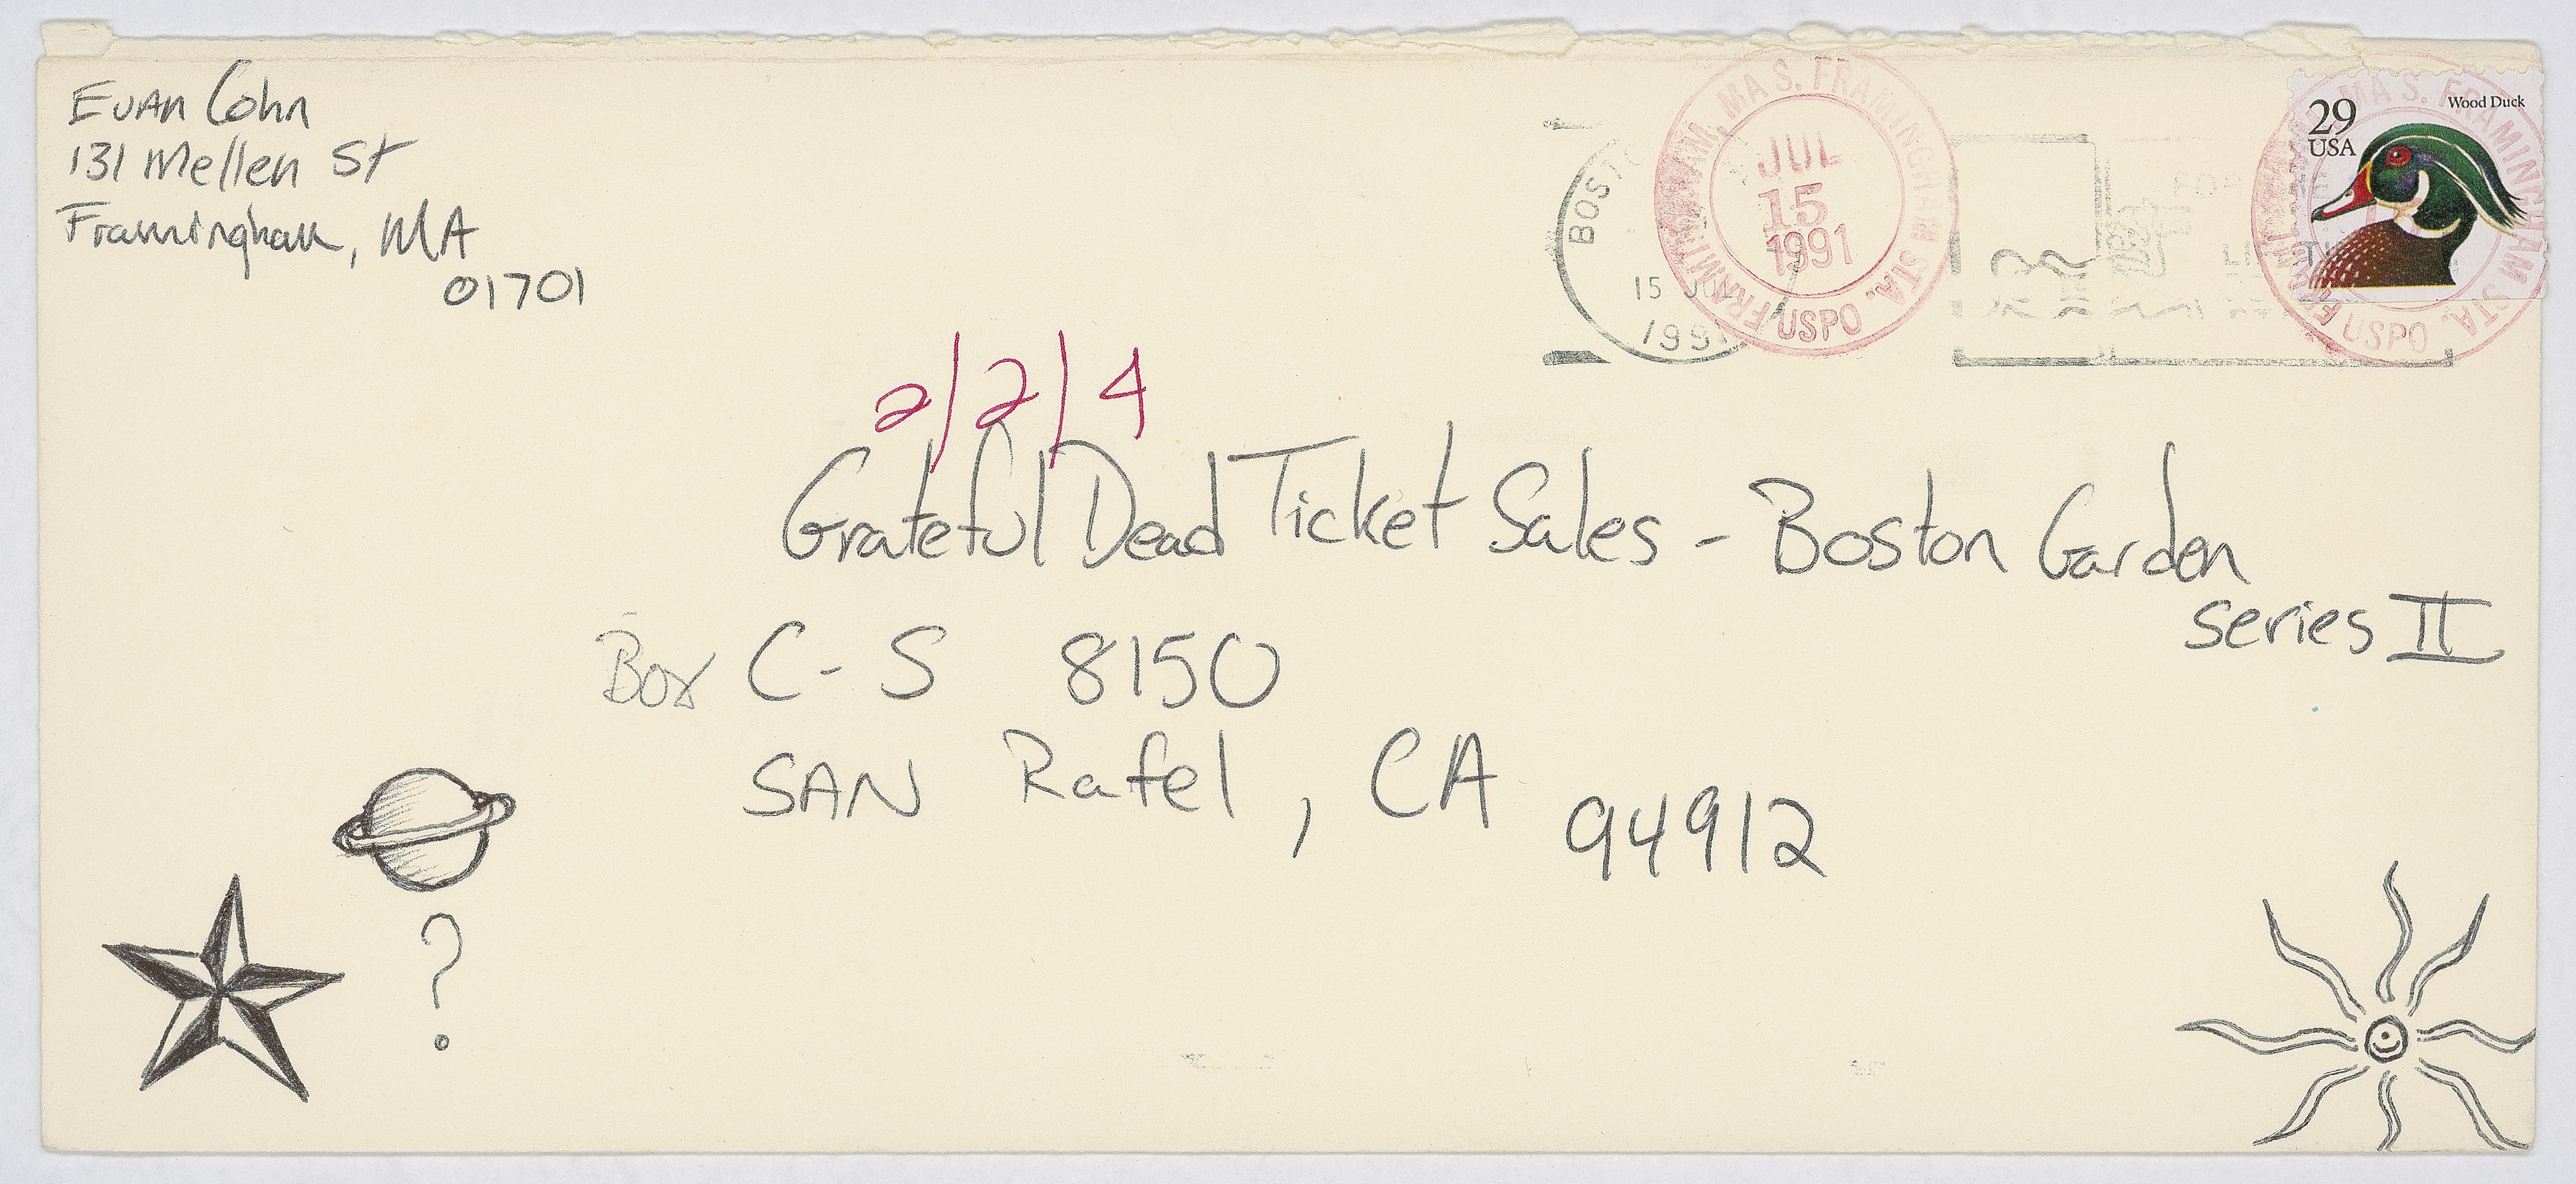 Evan Cohn
131 Mellen St
Framingham, MA
01701
MA S. FRAMINGHAM STA.
FRAMINGHAM,
JUL
15
1991
USPO
BOST
15 JUL
1991
FOR
29
USA
Wood Duck
MA S. FRAMINGHAM STA.
USPO
2/2/4
Grateful Dead Ticket Sales - Boston Garden
series II
Box C-S 8150
SAN Rafel, CA 94912
?